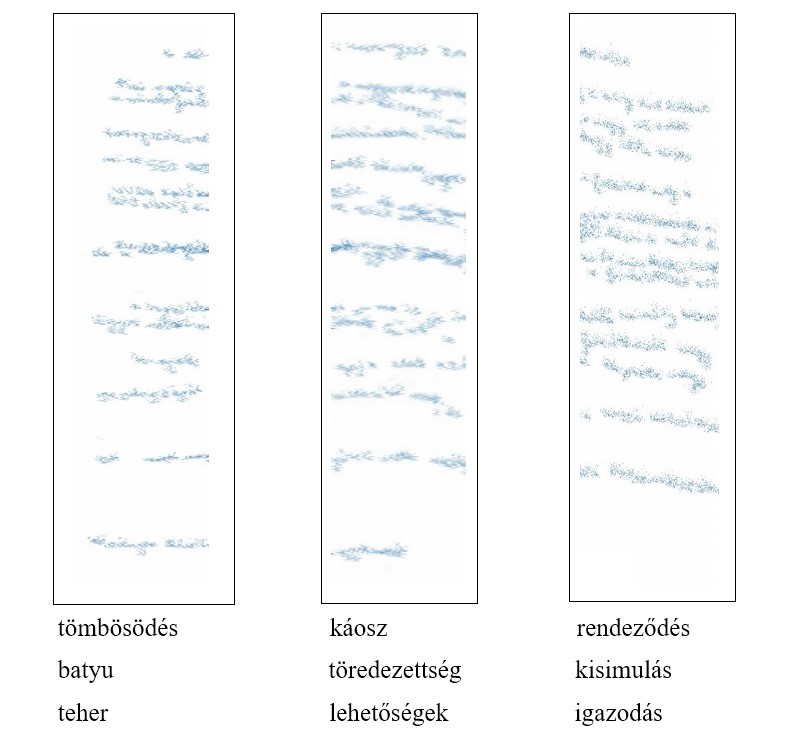 tömbösödés
batyu
teher
káosz
töredezettség
lehetőségek
rendeződés
kisimulás
igazodás